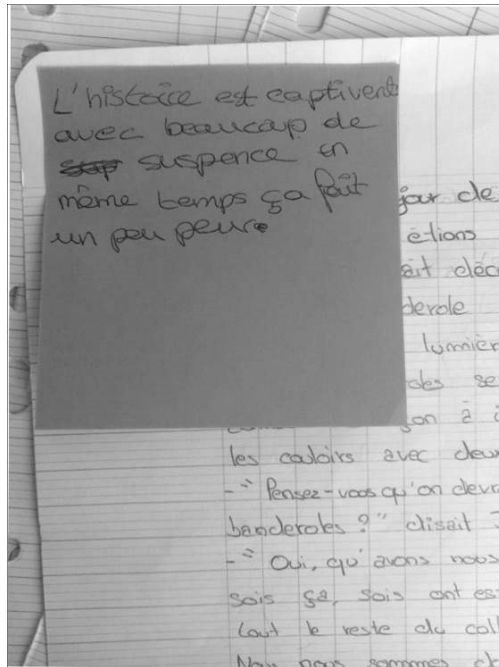 L'histoire est captivent
avec beaucap de
suspence en
même temps ça fait
un peu peur.
jour de
étions
ait déco
derole
lumièr
des se
çon à
les couloirs avec deux
-" Pensez-vous qu'on devra
banderoles ?" disait
-" Oui, qu'avons nous
sois ça, sois ont es
tout le reste du coll
Nous nous sommes